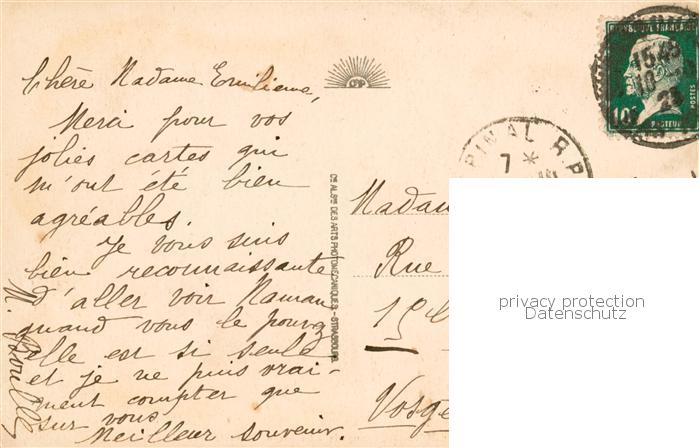 Chère Madame Emilienne,
Merci pour vos
jolies cartes qui
m'ont été bien
agréables.
Je vous suis
bien reconnaissante
d'aller voir Maman
quand vous le pouvez
elle est si seule
et je ne puis vrai-
ment compter que
sur vous
Meilleur souvenir.
Cie ALSne DES ARTS PHOTOMÉCANIQUES - STRASBOURG
RÉPUBLIQUE FRANÇAISE
POSTES
10c
PASTEUR
15 45
PINAL R.P
7 *
Madam
Rue
Vosge
privacy protection
Datenschutz